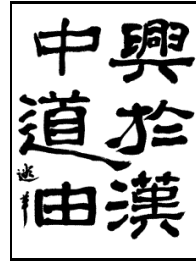 興於漢
中道由